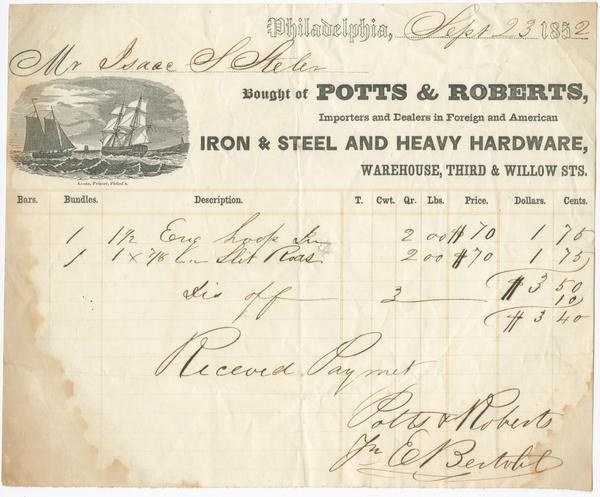 Philadelphia, Sept 23 1852
Mr Isaac S
Bought of POTTS & ROBERTS,
Importers and Dealers in Foreign and American
IRON & STEEL AND HEAVY HARDWARE,
WAREHOUSE, THIRD & WILLOW STS.
Bars. Bundles. Description. T. Cwt. Qr. Lbs. Price. Dollars. Cents.
1 1½ Eng hoop 2 00 $70 1 75
1 1 x 7/8 Slit Rods 2 00 $70 1 75
$ 3 50
Dis off 3 10
$ 3 40
Receved Paymet
Potts & Roberts
E Bertolet